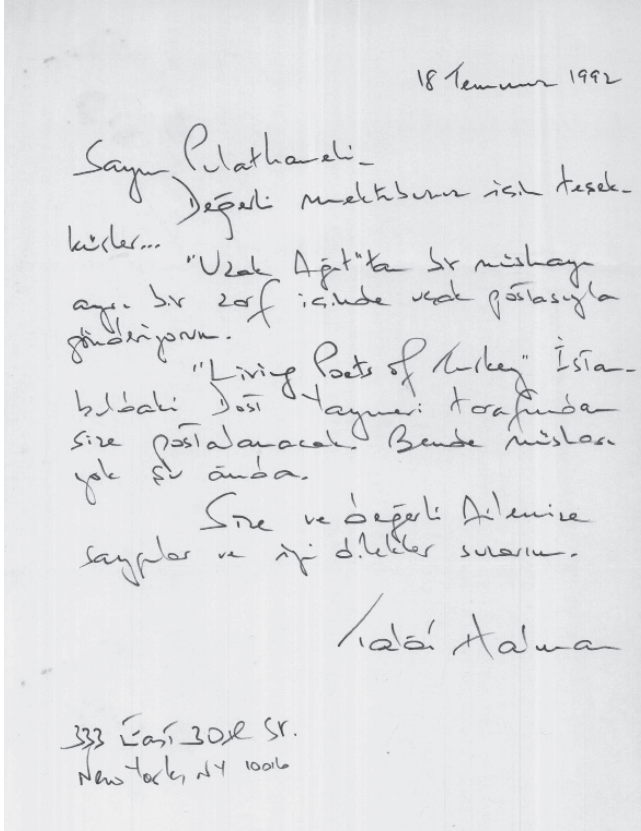 18 Temmuz 1992
Sayın Pulathaneli-
Değerli mektubunuz için teşek-
kürler...
"Uzak Ağıt"tan bir nüshayı
ayrı bir zarf içinde uçak postasıyla
gönderiyorum.
"Living Poets of Turkey" İstan-
buldaki Dost Yayınevi tarafından
size postalanacak. Bende nüshası
yok şu anda.
Size ve değerli Ailenize
saygılar ve iyi dilekler sunarım.
Talât Halman
333 East 30th St.
New York, NY 10016